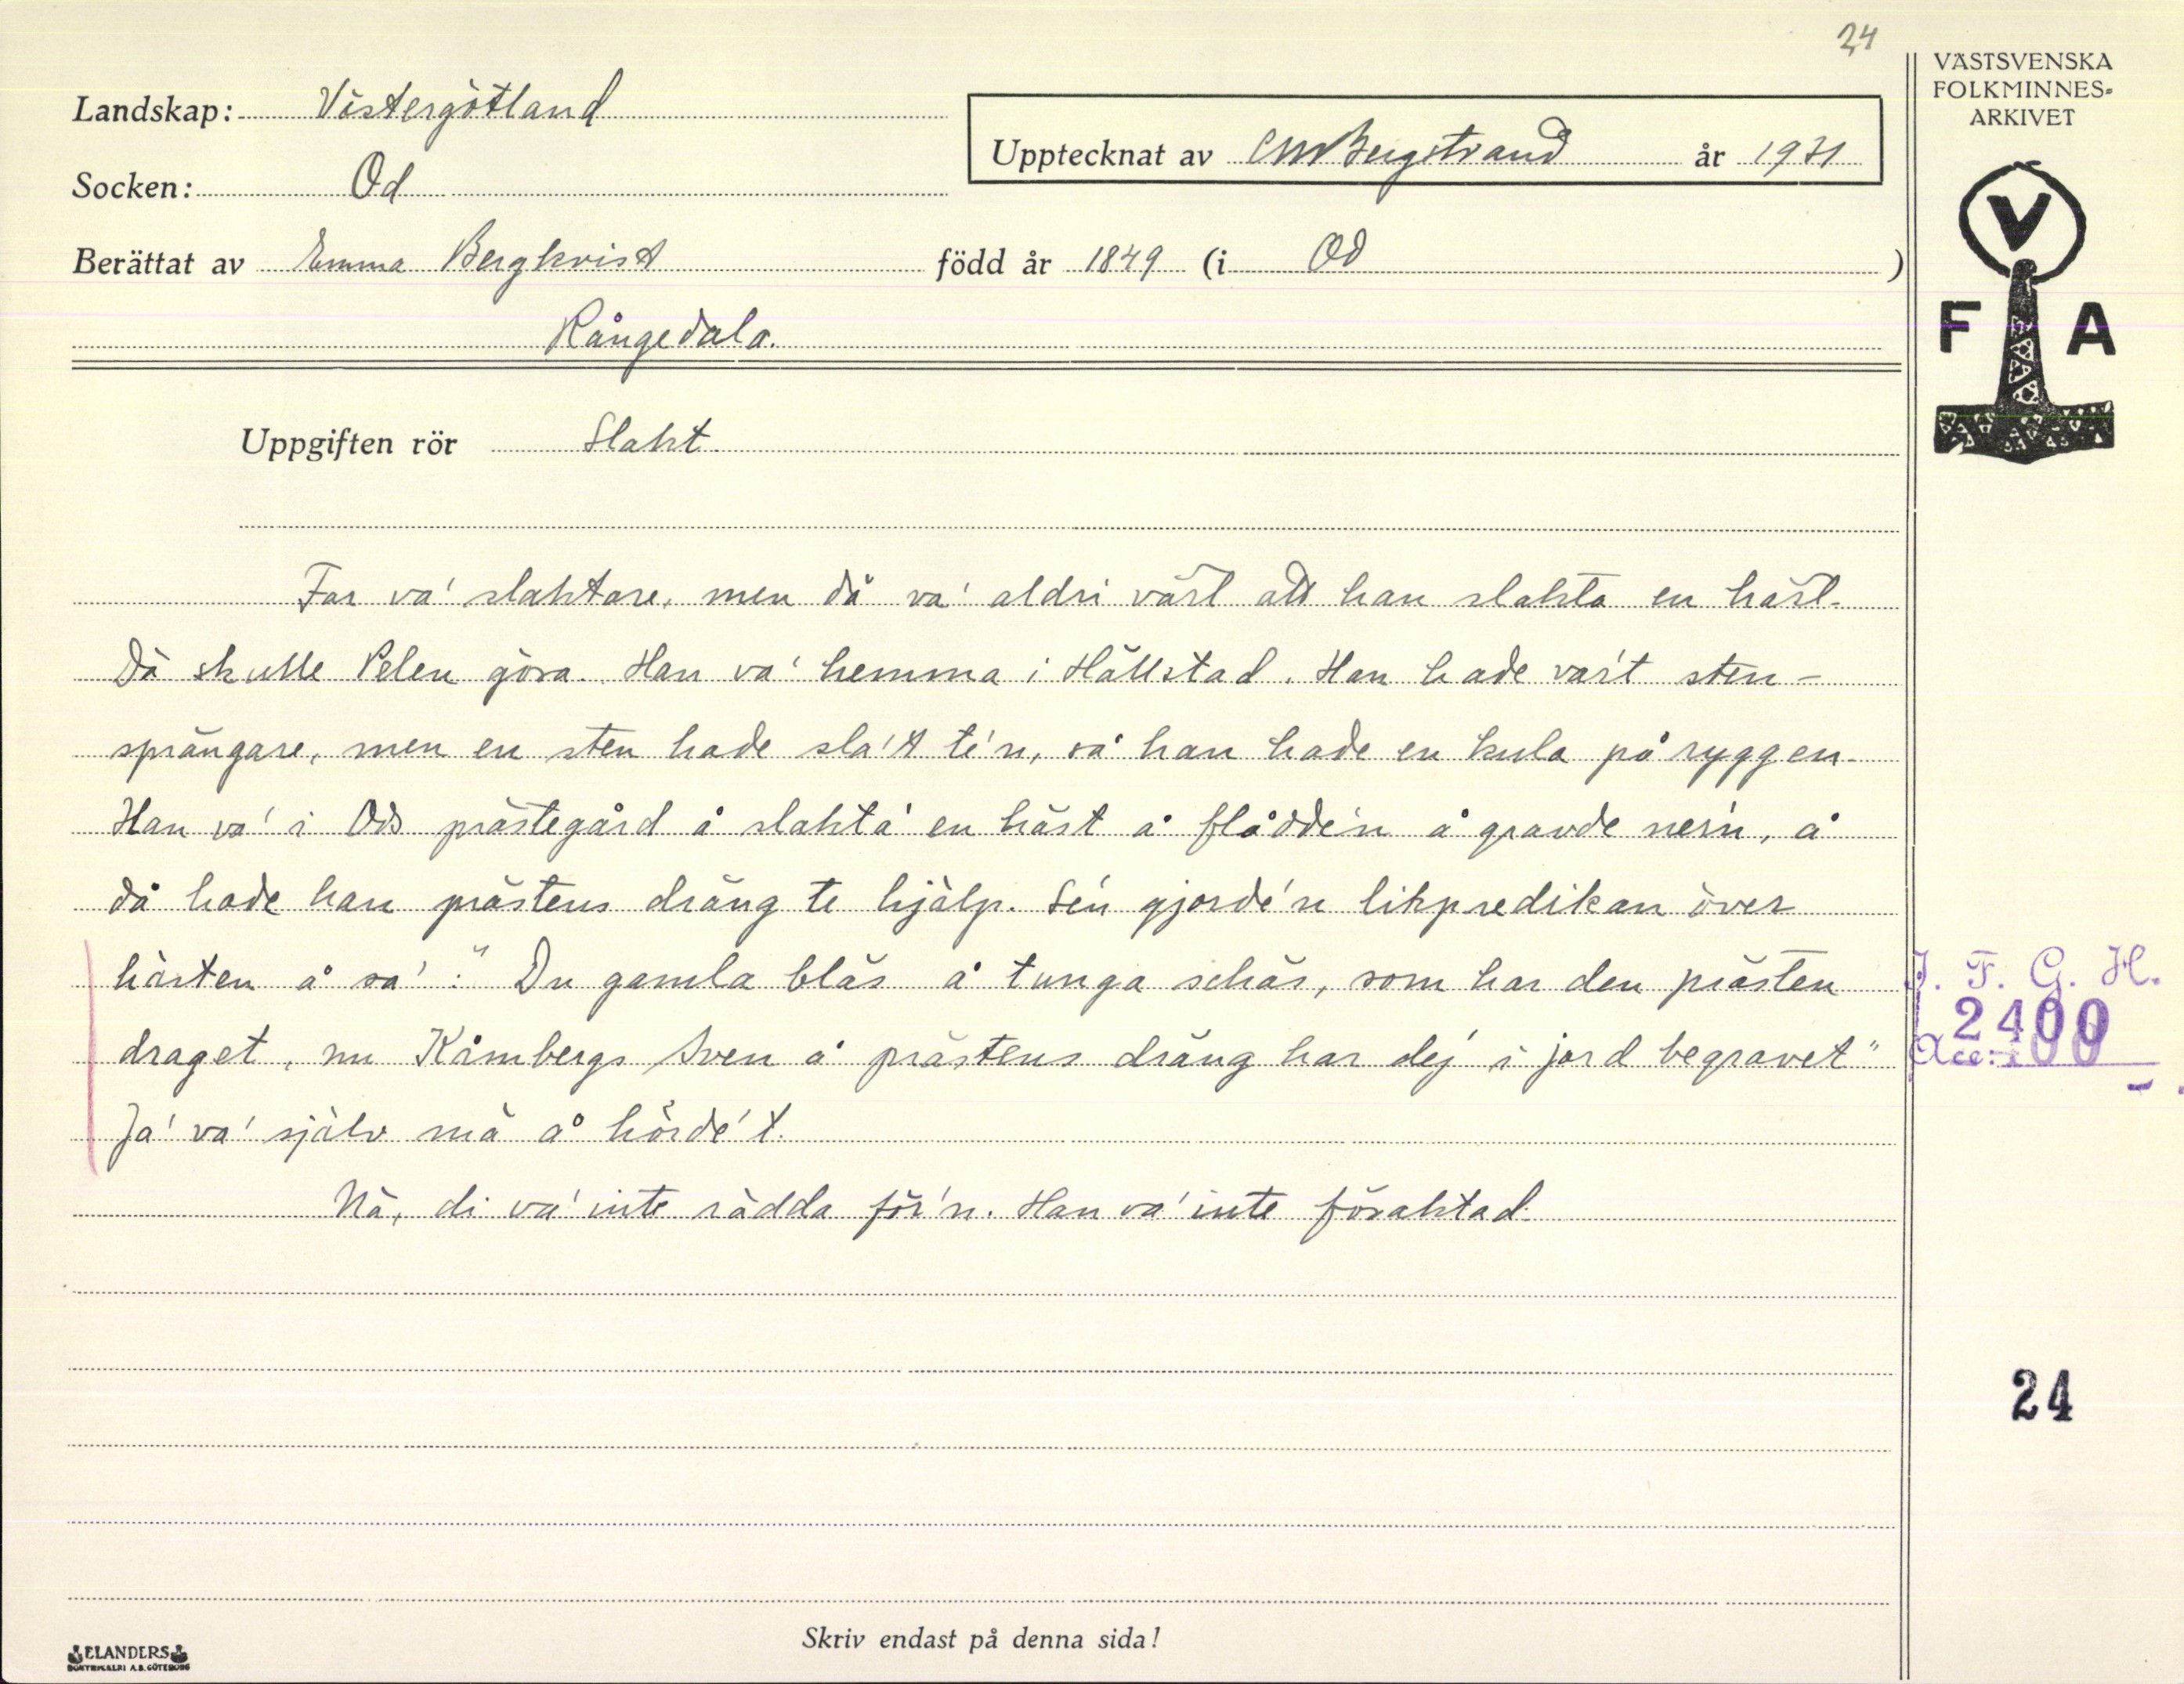 24
VÄSTSVENSKA
FOLKMINNES-
ARKIVET
Landskap: Västergötland
Upptecknat av CMBergstrand år 1931
Socken: Od
Berättat av Emma Bergkvist född år 1849 (i Od )
Rångedala.
V
F A
Uppgiften rör Slakt.
Far va' slaktare, men dä va' aldri värt att han slakta en häst.
Dä skulle Pelen göra. Han va' hemma i Hällstad. Han hade va'rt sten-
sprängare, men en sten hade sla't te'n, så han hade en kula på ryggen.
Han va' i Ods prästegård å slakta' en häst å flådde'n å gravde ner'n, å
då hade han prästens dräng te hjälp. Se'n gjorde'n likpredikan över
hästen å sa': "Du gamla bläs å tunga schäs, som har den prästen
draget, nu Kåmbergs Sven å prästens dräng har dej i jord begravet"
Ja' va' själv mä å hörde't.
I. F. G. H.
2400
Acc:
Nä, di va' inte rädda för'n. Han va' inte föraktad.
24
Skriv endast på denna sida!
ELANDERS
BOKTRYCKERI A.B. GÖTEBORG